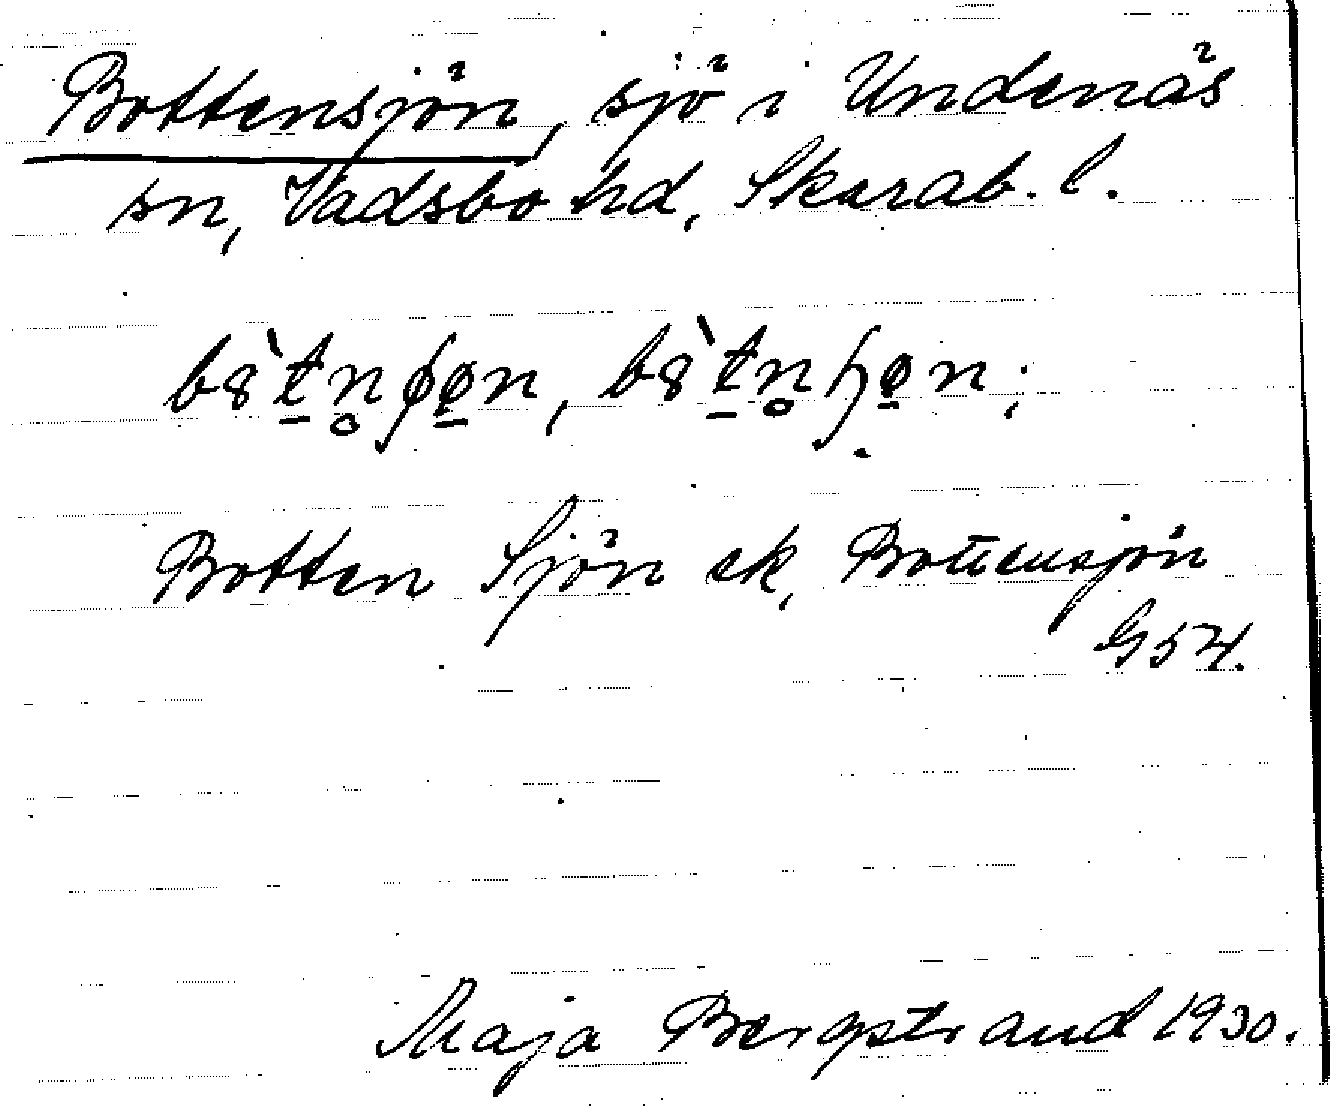 Bottensjön, sjö i Undenäs
sn, Vadsbo hd, Skarab. l.
Botten Sjön ek, Bottensjön
G54.
Maja Bergstrand 1930.